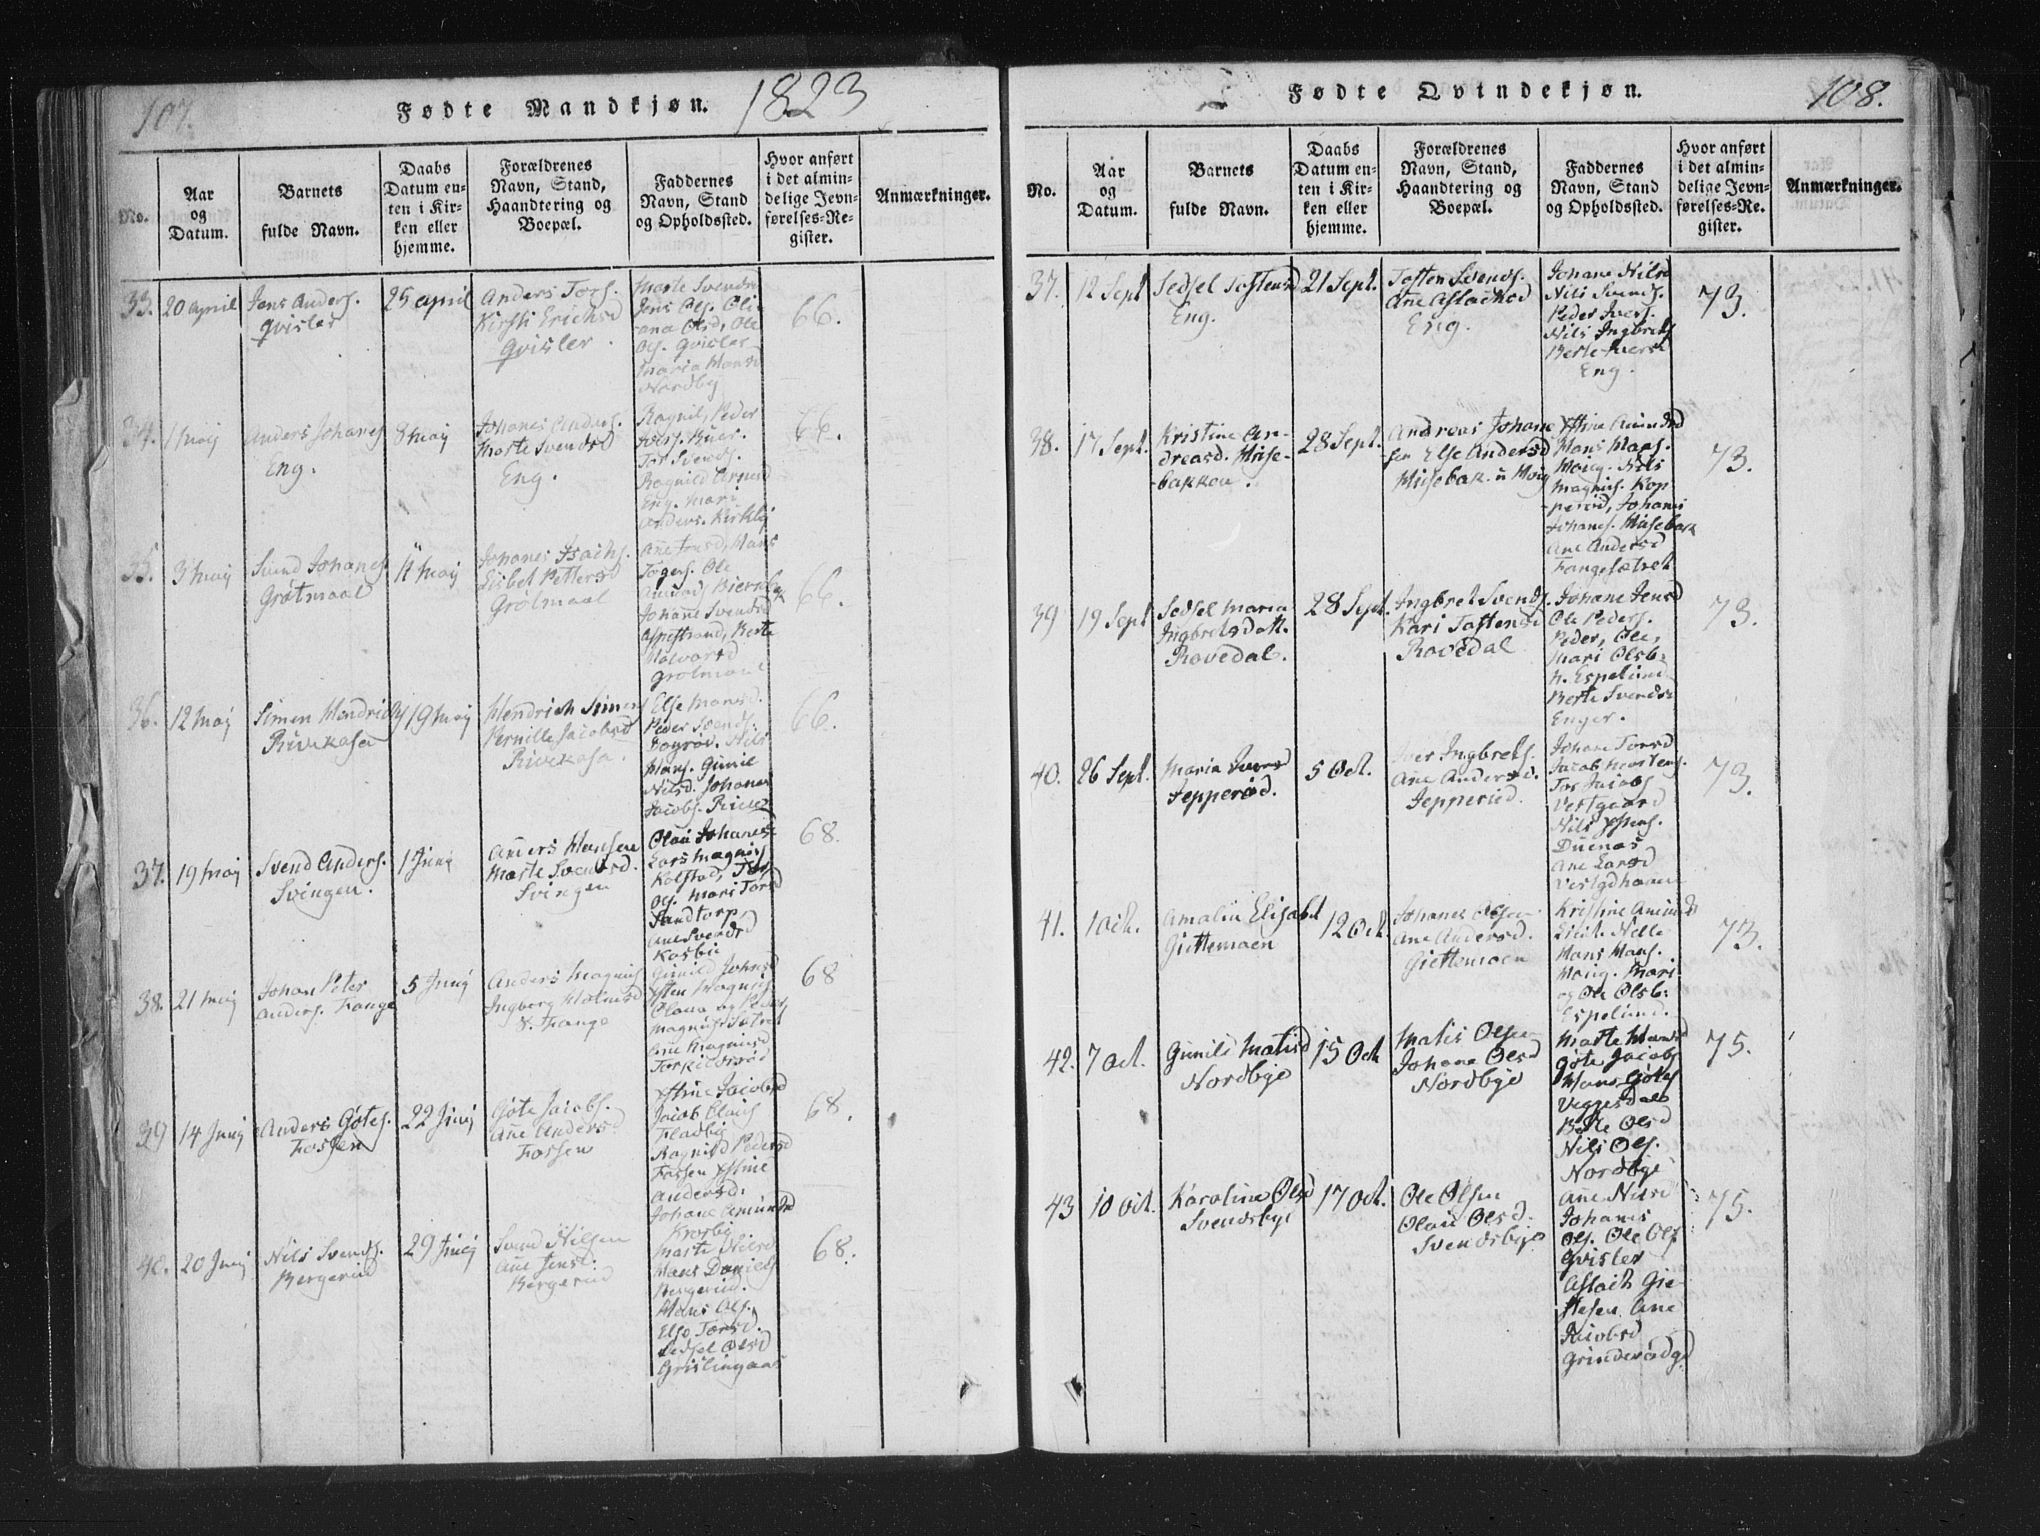 107.
Fødte Mandkjøn. 1823
No.
Aar
og
Datum.
Barnets
fulde Navn.
Daabs
Datum en-
ten i Kir-
ken eller
hjemme.
Forældrenes
Navn, Stand,
Haandtering og
Boepæl.
Faddernes
Navn, Stand
og Opholdssted.
Hvor anført
i det almin-
delige Jevn-
førelses-Re-
gister.
Anmærkninger.
33. 20 april
Jens Anders.
Qvisler
25 april
Anders Tors.
Kirsti Erichsd
Qvisler.
Marte Svendsd
Jens Ols. Oli-
ana Olsd, Ole
Ols. Qvisler
Maria Hansd
Nordby
66.
34. 1 maij
Anders Johanes.
Eng.
8 maij
Johanes Anders.
Marte Svendsd
Eng.
Ragnil, Peder
Ivers. Buer.
Tor Svends.
Ragnild Arnesd
Eng. Mari
Anders. Kirkby
66.
35. 3 maij
Svend Johanes
Grøtmaal
11 maij
Johanes Isachs.
Lisbet Pettersd
Grølmaal
Ane Jensd, Hans
Togers. Ole
Johane Svendsd
Aspestrand, Berte
Halvorsd
Grølmaal
66.
36. 12 maij
Simen Hendrichs
Rivekasa
19 maij
Hendrich Simens
Pernille Jacobsd
Rivekasa.
Else Hansd.
Peder Svends.
Nils
Hans. Gunil
Nilsd. Johanes
Jacobs. Riuer
66.
37. 19 maij
Svend Anders.
Svingen.
1 Junij
Anders Hansen
Marte Svendsd.
Svingen
Olau Johanesd
Lars Magnus
Kolstad, Tor
Ols. Mari Torsd
Sandtorp,
Ane Svendsd
Kasbii
68.
38. 21 maij
Johan Peter
Anders. Fange
5 Junij
Anders Magnus
Ingborg Holmesd
S. Fange
Gunild Johnsd
Østen Magnus
Olaua og Peder
Magnus Sætret
Ane Magnusd
Torkilsrød
68
39 14 Junij
Anders Gøtes.
Fossen
22 Junij
Gøte Jacobs.
Ane Andersd
Fossen
Østine Jacobsd
Jacob Olaus
Fladbij
Ragnild Pedersd
Fossen Østine
Andersd.
Johane Amundsd
Krosbij
68.
40. 20 Junij
Nils Svends.
Bergerud
29 Junij
Svend Nilsen
Ane Jensd.
Bergerud
Marte Nilsd
Hans Daniels
Bergerud.
Hans Ols.
Else Torsd.
Sedsel Olsd
Grislingaas
68.
Fødte Qvindekjøn. 108.
No.
Aar
og
Datum.
Barnets
fulde Navn.
Daabs
Datum en-
ten i Kir-
ken eller
hjemme.
Forældrenes
Navn, Stand,
Haandtering og
Boepæl.
Faddernes
Navn, Stand
og Opholdssted.
Hvor anført
i det almin-
delige Jevn-
førelses-Re-
gister.
Anmærkninger.
37. 12 Sept
Sedsel Tostensd
Eng.
21 Sept.
Tosten Svends.
Ane Aslachsd
Eng.
Johane Nilsd
Nils Svends.
Peder Ivers.
Nils Ingbrets
Berte Iversd
Eng.
73.
38. 17 Sept.
Kristine An-
dreasd. Muse-
bakken.
28 Sept.
Andreas Johane
sen Else Andersd
Musebak. u Moig
Østine Amundsd
Hans Hans.
Moig. Nils
Magnus. Kop
perød, Johanis
Johanes. Musebak
Ane Andersd
Fangesætret
73.
39 19 Sept
Sedsel Maria
Ingbretsdatt.
Rovedal.
28 Sept.
Ingbret Svends.
Kari Tostensd
Rovedal
Johane Jensd
Ole Peders.
Peder, Ole,
Mari Olsb:
N. Espelund
Berte Svendsd
Enger.
73.
40. 26 Sept.
Maria Iversd
Jepperød.
5 Oct.
Iver Ingbrets.
Ane Andersd.
Jepperød.
Johane Torsd
Jacob Torstens.
Tor Jacobs
Vestgaard
Nils Østens.
Duenas
Ane Larsd
73.
41. 1 Oct.
Amalia Elisabet
Giettemoen
12 Oct.
Johanes Olsen
Ane Andersd.
Giettemoen
Kristine Amundsd
Hans Hans.
Moig. Mari
og Ole Olsb:
Espelund.
73.
42. 7 Oct.
Gunild Matisd
Nordbye
15 Oct
Matis Olsen
Johane Olsd
Nordbye
Marte Hansd
Gøte Jacobs
Hans Gøtes
Veggesdal
Berte Olsd
Nils Ols.
Nordbye
75.
43 10 Oct.
Karoline Olsd
Svendsbye
17 Oct.
Ole Olsen
Olau Olsd.
Svendsbye
Ane Nilsd
Johanis
Ols. Ole Ols
Qvisler
Aslach Gie-
Ane
Jacobsd
Grinderødgd
75.